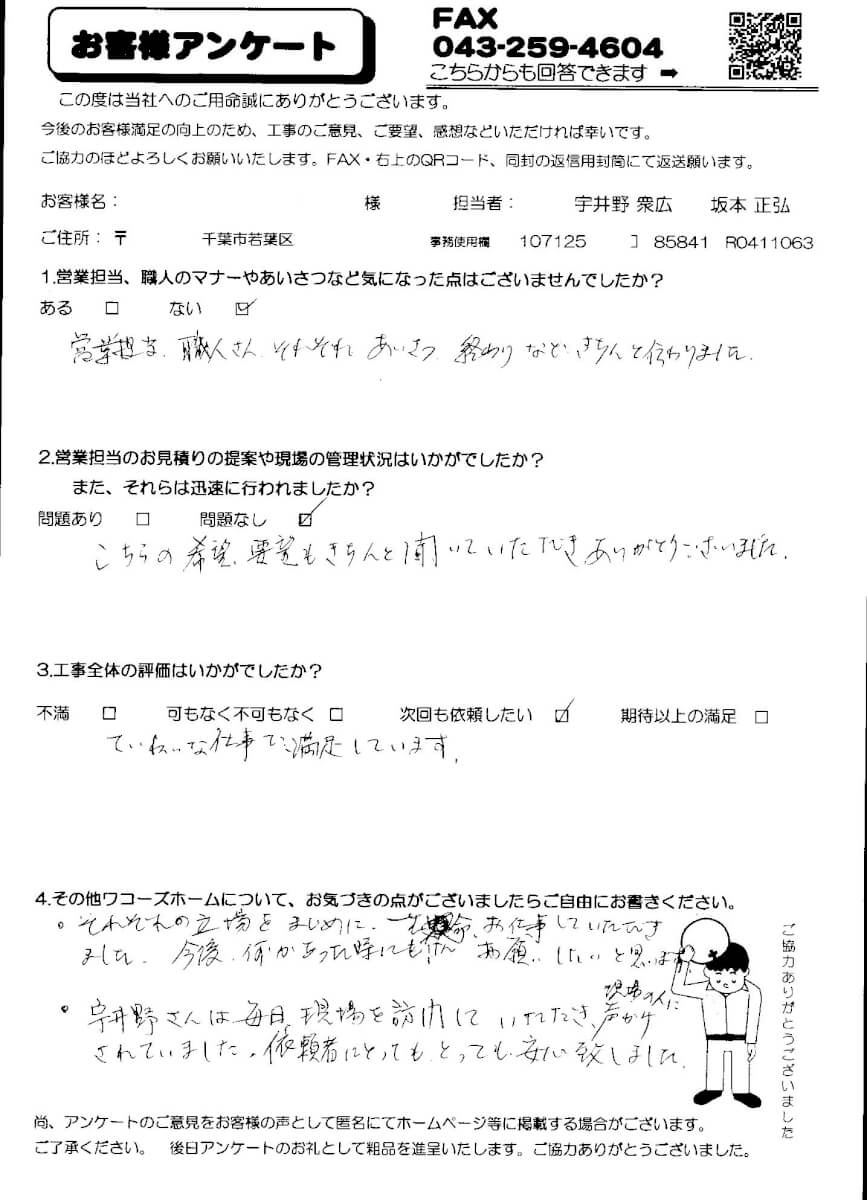 お客様アンケート
FAX
043-259-4604
こちらからも回答できます ➡
この度は当社へのご用命誠にありがとうございます。
今後のお客様満足の向上のため、工事のご意見、ご要望、感想などいただければ幸いです。
ご協力のほどよろしくお願いいたします。FAX・右上のQRコード、同封の返信用封筒にて返送願います。
お客様名： 様 担当者： 宇井野 衆広 坂本 正弘
ご住所：〒 千葉市若葉区 事務使用欄 107125 85841 R0411063
1.営業担当、職人のマナーやあいさつなど気になった点はございませんでしたか？
ある □ ない ☑
営業担当、職人さん、それぞれ あいさつ、終わり など、きちんと伝わりました。
2.営業担当のお見積りの提案や現場の管理状況はいかがでしたか？
また、それらは迅速に行われましたか？
問題あり □ 問題なし ☑
こちらの希望、要望もきちんと聞いていただきありがとうございました。
3.工事全体の評価はいかがでしたか？
不満 □ 可もなく不可もなく □ 次回も依頼したい ☑ 期待以上の満足 □
ていねいな仕事で、満足しています。
4.その他ワコーズホームについて、お気づきの点がございましたらご自由にお書きください。
。それぞれの立場をまじめに、命、お仕事していただき
ました。今後、何かあった時にも お願いしたいと思います。
。宇井野さんは毎日、現場を訪問していただき、現場の人に声かけ
されていました。依頼者にとっても、とっても安心致しました。
ご協力ありがとうございました
尚、アンケートのご意見をお客様の声として匿名にてホームページ等に掲載する場合がございます。
ご了承ください。 後日アンケートのお礼として粗品を進呈いたします。ご協力ありがとうございました。